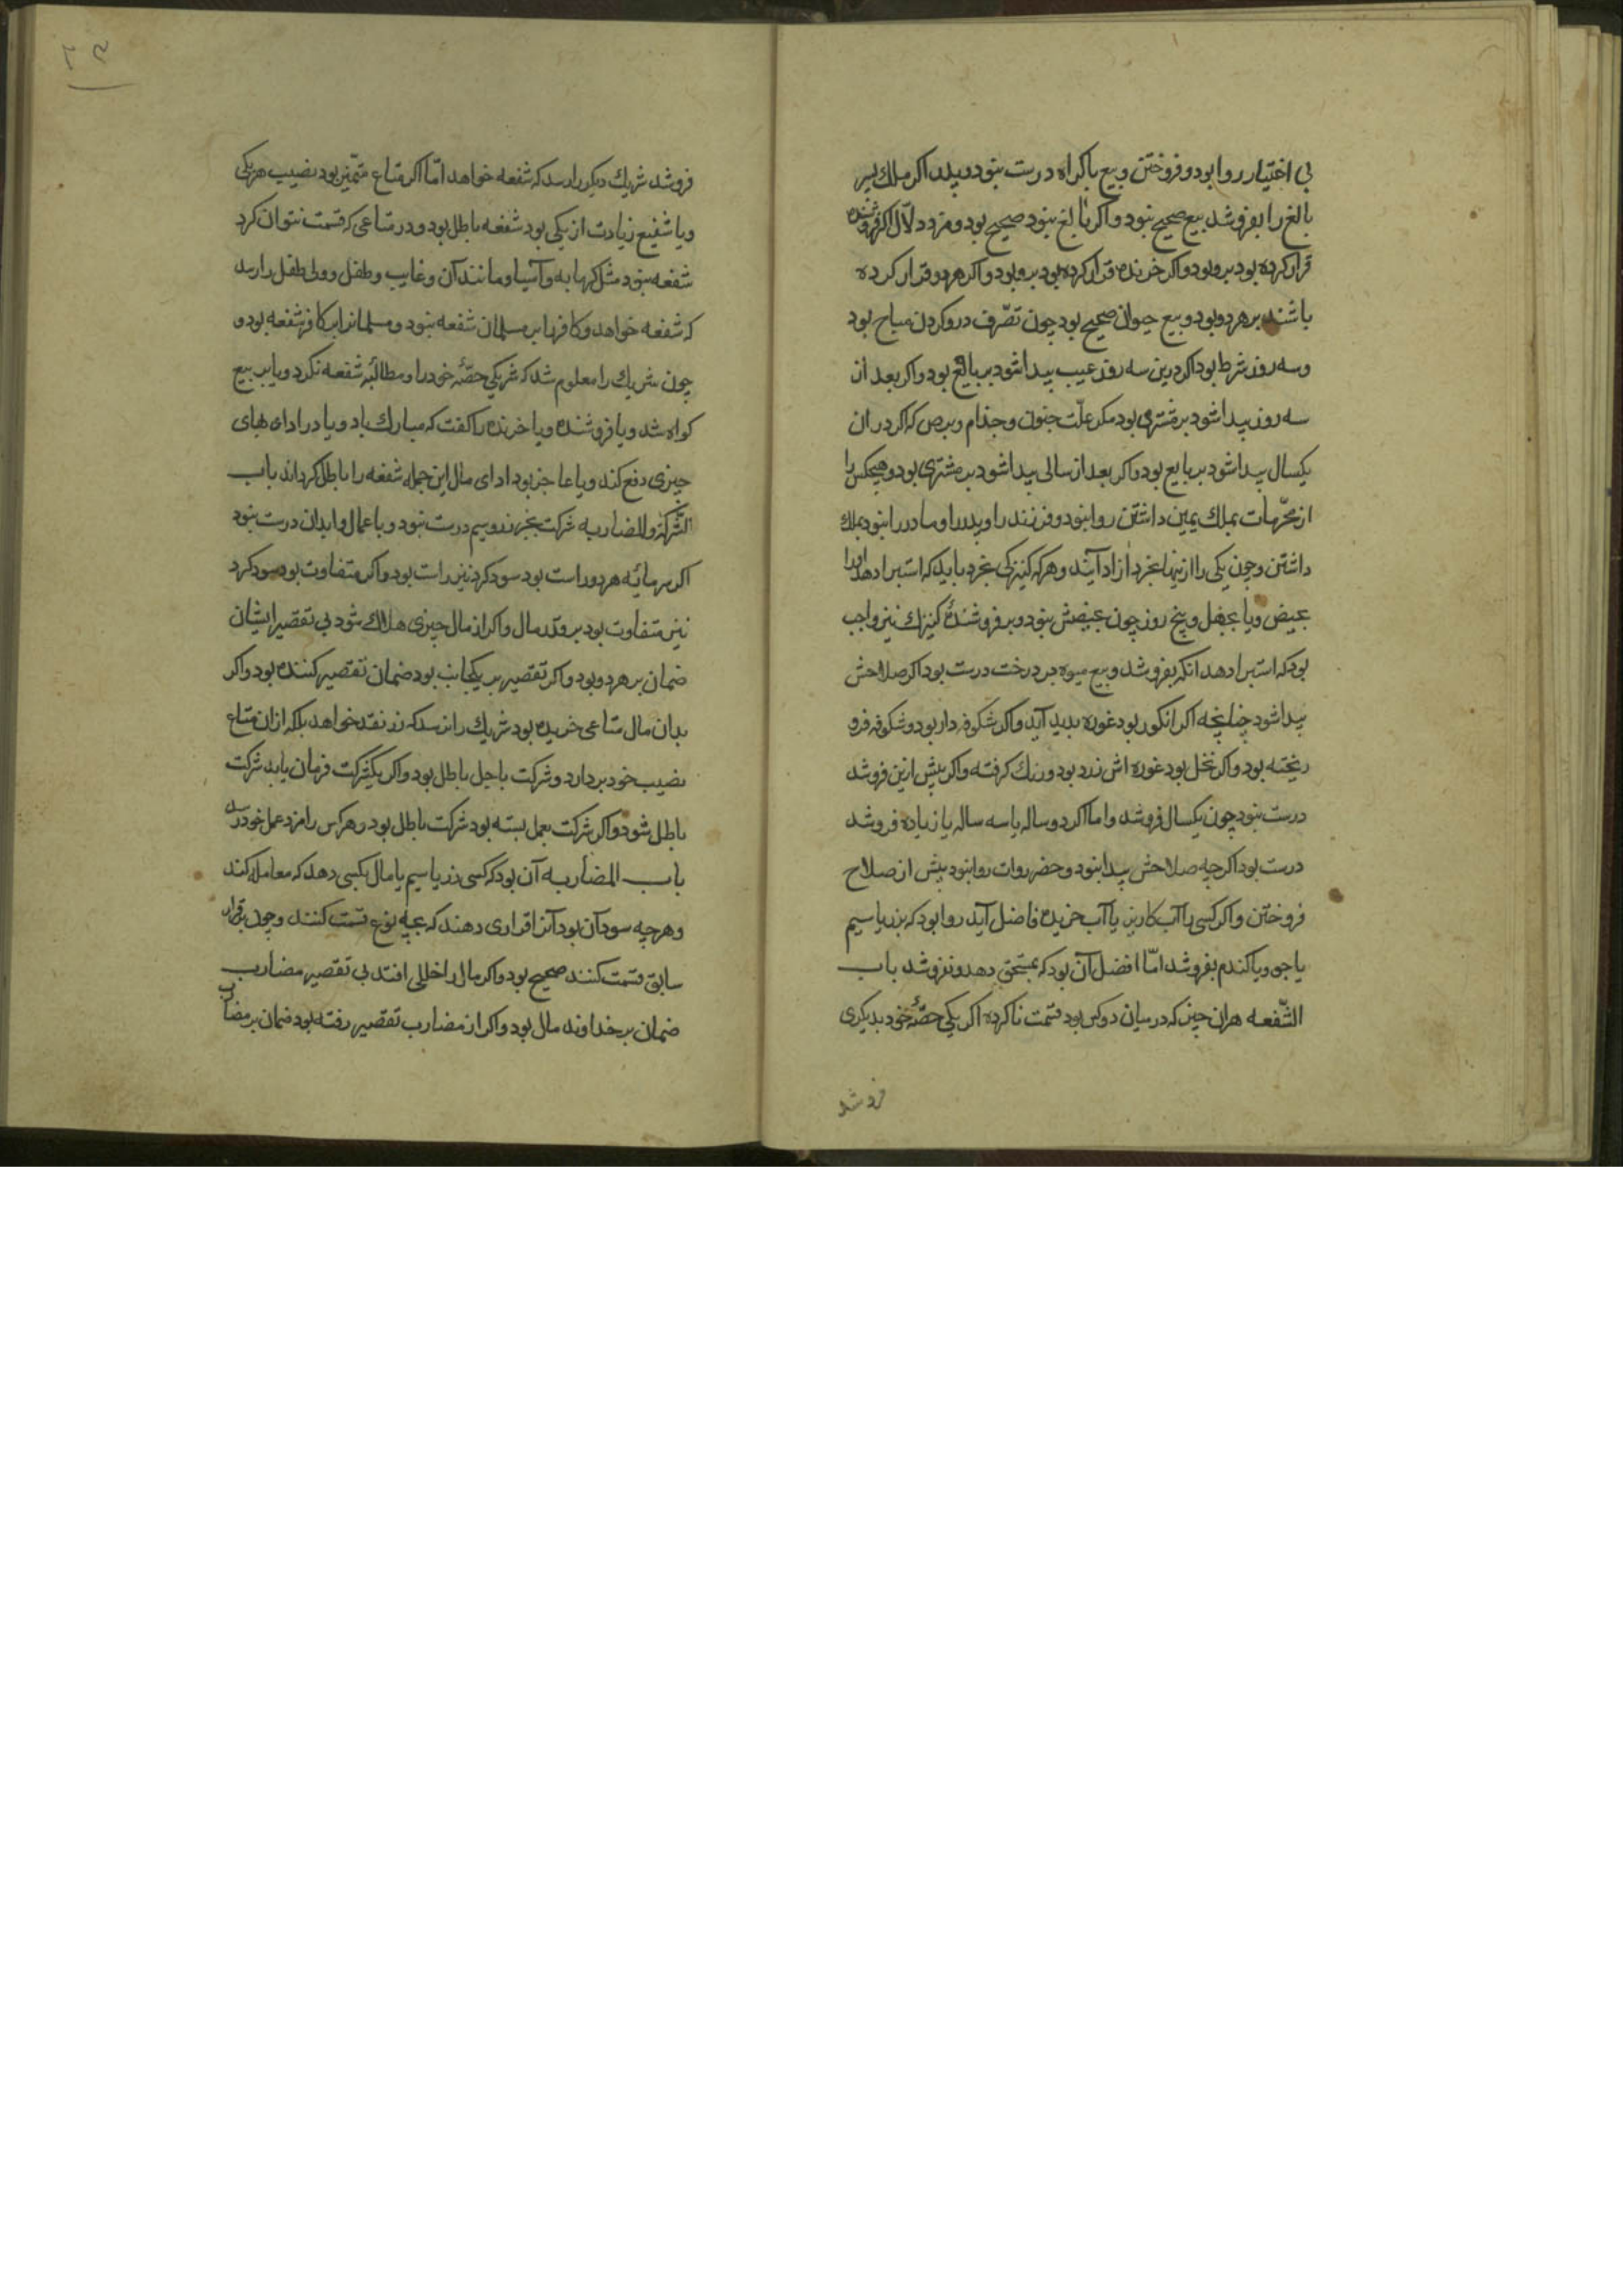 بی اختیار روا بود و فروختن و بیع باکراه درست نبود و پدر اکر ملك پسر
بالغ را بفروشد بیع صحیح نبود و اکر نا بالغ نبود صحیح بود و مزد دلّال اکر فروشنده
قرار کرده بود برو بود و اکر خرنده قرار کرده بود برو بود و اکر هر دو قرار کرده
باشند بر هر دو بود و بیع حیوان صحیح بود چون تصّرف درو کردن مباح بود
و سه روز شرط بود اکر درین سه روز عیب پیدا شود بر بایع بود و اکر بعد از
سه روز پیدا شود بر مشتری بود مکر علّت جنون و جذام و برص که اکر در ان
یکسال پیدا شود بر بایع بود و اکر بعد از سالی پیدا شود بر مشتری بود و هیچکس را
از محّرمات بملك یمین داشتن روا نبود و فرزند را و پدر را و مادر را نبود بملك
داشتن و چون یکی را ازینها بخرد ازاد آیند و هر که کنیزکی بخرد باید که استبرا دهد اورا
بحیض و یا بچهل و پنج روز چون بحیضش نبود و بر فروشندهٔ کنیزك نیز واجب
بود که استبرا دهد انکه بفروشد و بیع میوه بر درخت درست بود اکر صلاحش
پیدا شود چنانچه اکر انکور بود غوره بدید آید و اکر شکوفه دار بود و شکوفه فرو
ریخته بود و اکر نخل بود غوره اش زرد بود و رنك کرفته و اکر پیش ازین فروشد
درست نبود چون یکسال فروشد و اما اکر دو ساله یا سه ساله یا زیاده فروشد
درست بود اکر چه صلاحش پیدا نبود و خضروات روا نبود پیش از صلاح
فروختن و اکر کسی را آب کاریز یا آب خریده فاضل آید روا بود که بزر یا سیم
یا جو و یا کندم بفروشد امّا افضل آن بود که بمستحق دهد و نفروشد باب
الشّفعه هران چیز که درمیان دو کس بود قسمت نا کرده اکر یکی حصّهٔ خود بدیکری
فروشد
فروشد شریك دیکر را رسد که شفعه خواهد امّا اکر متاع متمیّز بود نصیب هر یکی
و یا شفیع زیادت از یکی بود شفعه باطل بود و در متاعی که قسمت نتوان کرد
شفعه نبود مثل کرمابه و آسیا و مانند آن و غایب و طفل و ولی طفل را رسد
که شفعه خواهد و کافر را بر مسلمان شفعه نبود و مسلمانرا بر کافر شفعه بود و
چون شریك را معلوم شد که شریکی حصّهٔ خود را و مطالبهٔ شفعه نکرد و یا بر بیع
کواه شد و یا فروشنده و یا خرنده را کفت که مبارك باد و یا در ادای بهای
چیزی دفع کند و یا عاجز بود ادای مال این جمله شفعه را باطل کرداند باب
الشّرکة والمضاربه شرکت بجز زر و سیم درست نبود و با عمال و ابدان درست نبود
اکر سرمایهٔ هر دو راست بود سود کرد نیز راست بود و اکر متفاوت بود سود کرد
نیز متفاوت بود بر قدر مال و اکر از مال چیزی هلاك شود بی تقصیر ایشان
ضمان بر هر دو بود و اکر تقصیر بر یکجانب بود ضمان تقصیر کننده بود و اکر
بدان مال متاعی خریده بود شریك را نرسد که زر نقد خواهد بلکه از ان متاع
نصیب خود بردارد و شرکت باجل باطل بود و اکر یکشرکت فرمان یابد شرکت
باطل شود و اکر شرکت بعمل بسته بود شرکت باطل بود و هر کس را مزد عمل خود رسد
باب المضاربه آن بود که کسی زر یا سیم یا مال بکسی دهد که معامله کند
و هر چه سود آن بود آنرا قراری دهند که بچه نوع قسمت کنند و چون بر قرار
سابق قسمت کنند صحیح بود و اکر مال را خللی افتد بی تقصیر مضارب
ضمان بر خداوند مال بود و اکر از مضارب تقصیر رفته بود ضمان بر مضارب